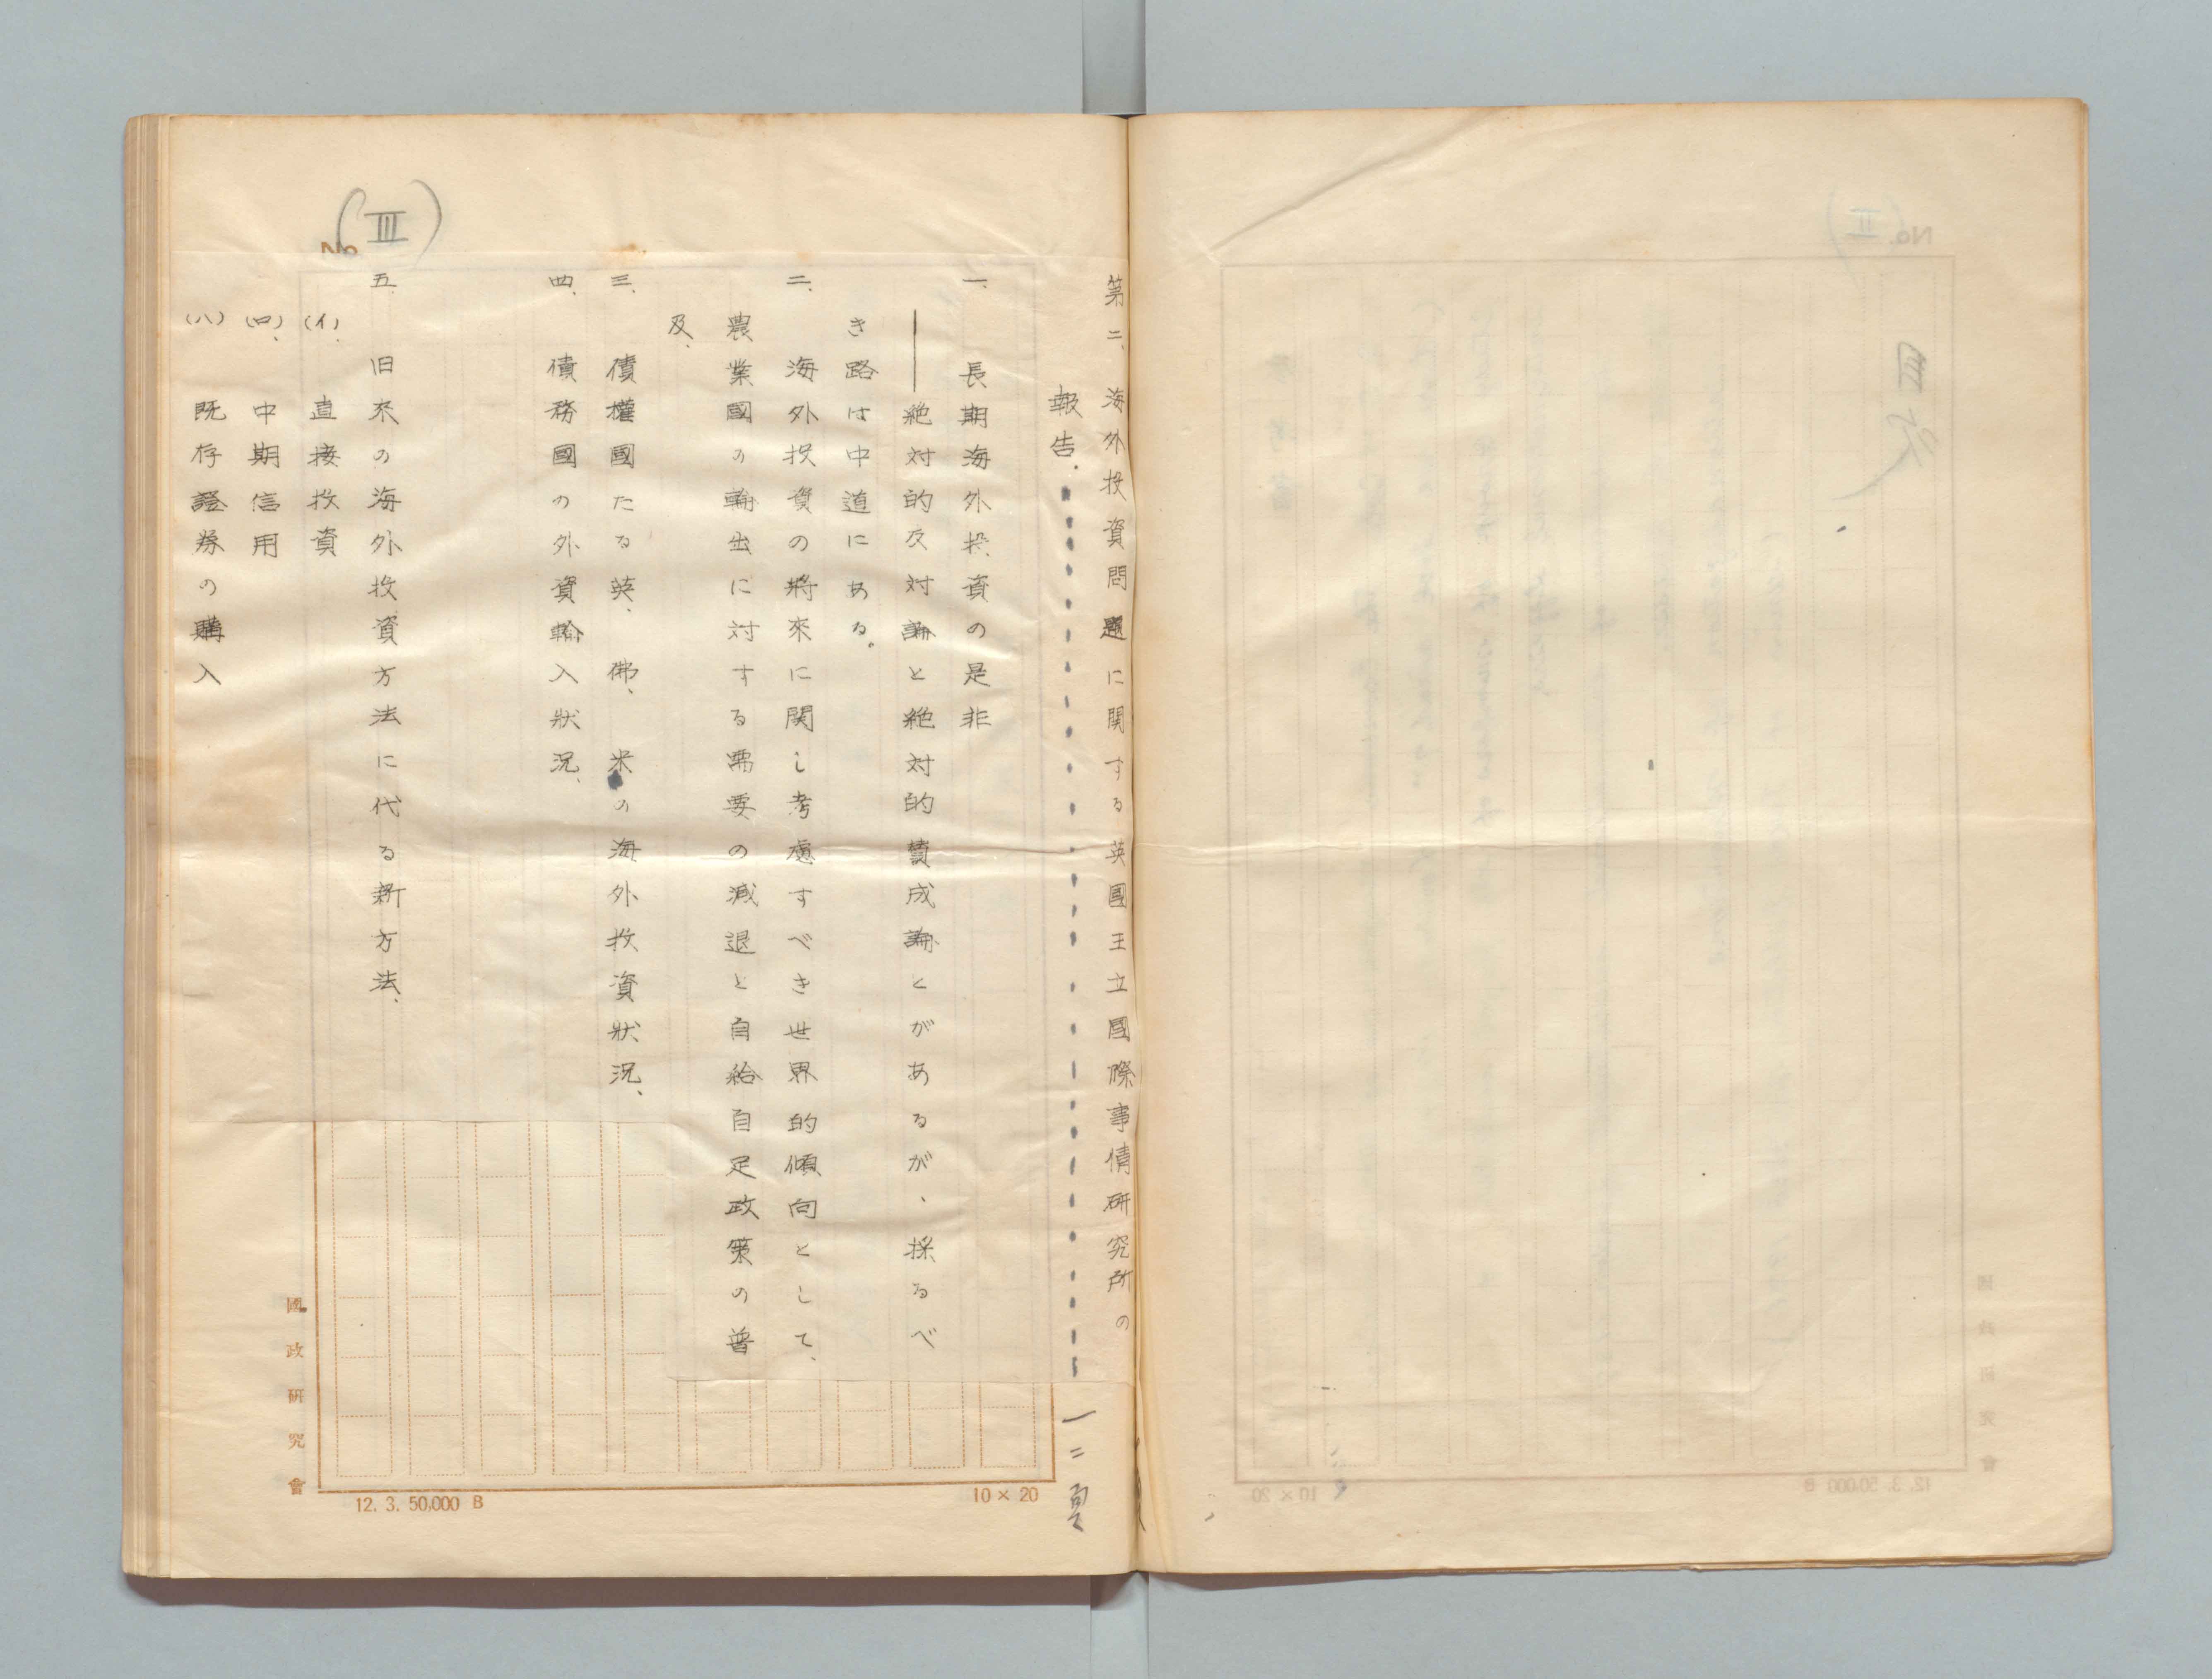 (III)
No.
第二、海外投資問題に関する英國王立國際事情研究所の
報告.……一二頁
一、長期海外投資の是非
——絶対的反対論と絶対的賛成論とがあるが、採るべ
き路は中道にある。
二、海外投資の將來に関し考慮すべき世界的傾向として、
農業國の輸出に対する需要の减退と自給自足政策の普
及、
三、債權國たる英、佛、米の海外投資狀况、
四、債務國の外資輸入狀况、
五、旧来の海外投資方法に代る新方法、
(イ)、直接投資
(ロ)、中期信用
(ハ)既存證券の購入
國政研究會
12. 3. 50,000 B
10×20
目次